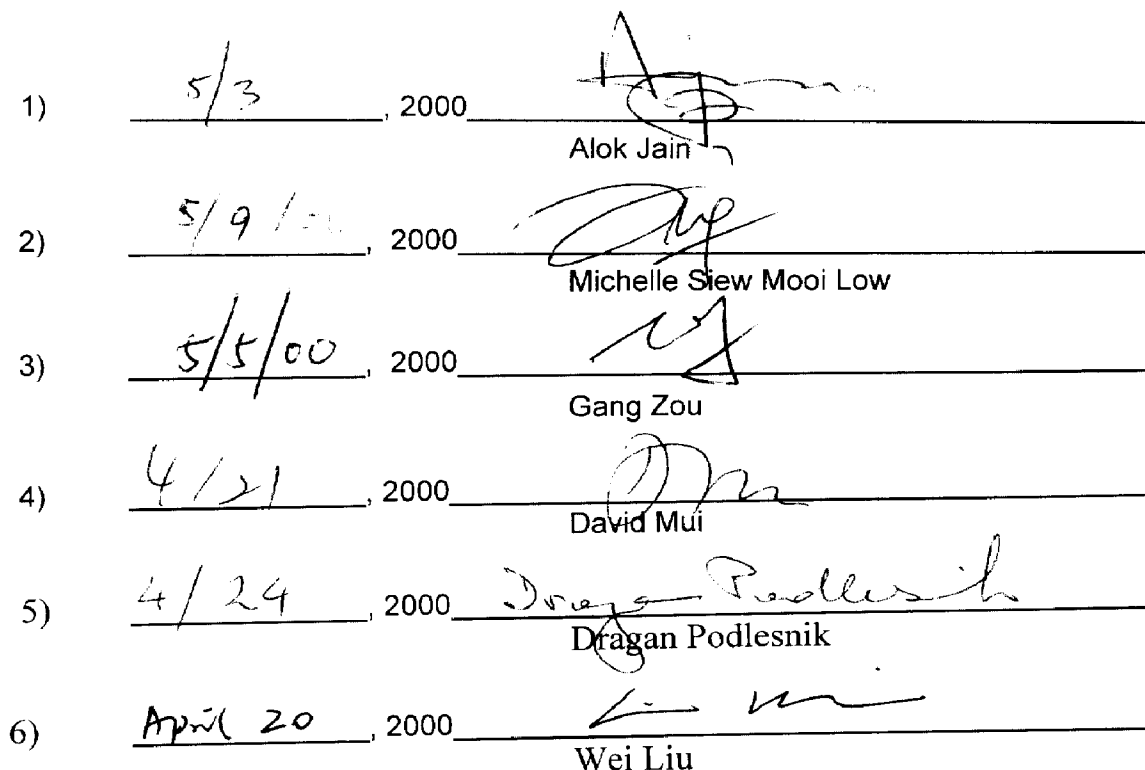 1) 5/3, 2000
Alok Jain
2) 5/9/00, 2000
Michelle Siew Mooi Low
3) 5/5/00, 2000
Gang Zou
4) 4/21, 2000
David Mui
5) 4/24, 2000 Dragan Podlesnik
Dragan Podlesnik
6) April 20, 2000
Wei Liu